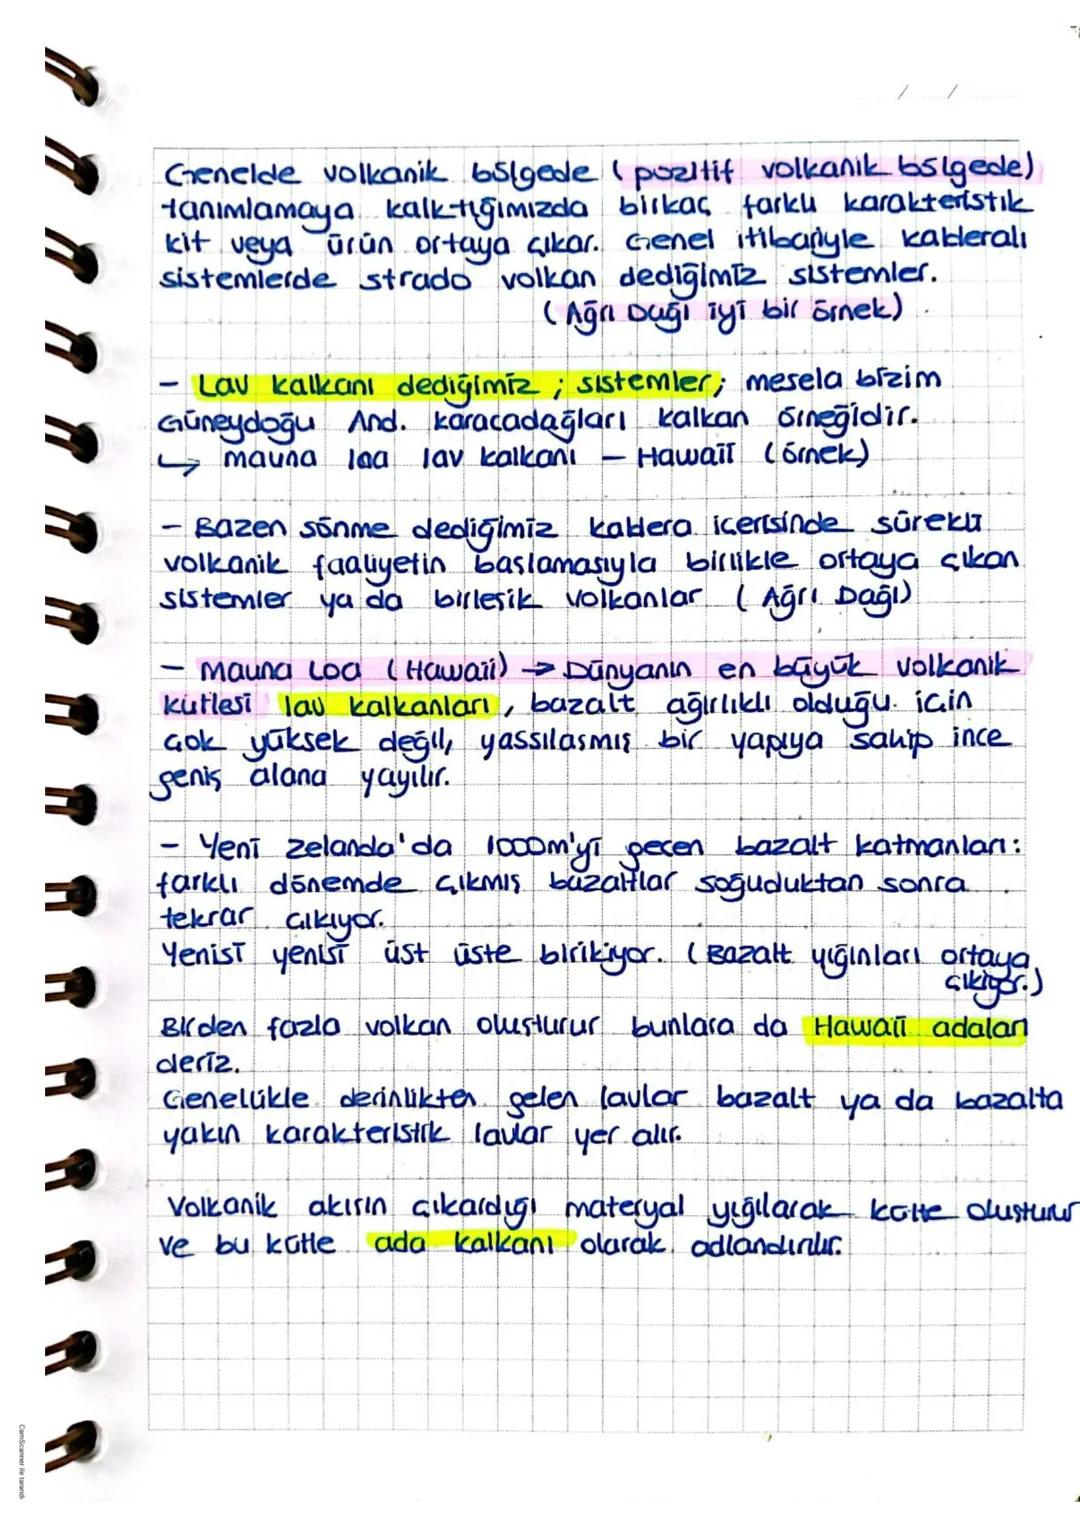 Genelde volkanik bölgede (pozitif volkanik bölgede)
tanımlamaya kalktığımızda birkaç farklı karakteristik
kit veya ürün ortaya çıkar. Genel itibariyle kalderalı
sistemlerde strado volkan dediğimiz sistemler.
(Ağrı Dağı iyi bir örnek)
- Lav kalkanı dediğimiz ; sistemler; mesela bizim
Güneydoğu And. karacadağları kalkan örneğidir.
↳ mauna loa lav kalkanı - Hawaii (örnek)
- Bazen sönme dediğimiz kaldera içerisinde sürekli
volkanik faaliyetin başlamasıyla birlikte ortaya çıkan
sistemler ya da birleşik volkanlar (Ağrı Dağı)
- Mauna Loa (Hawaii) → Dünyanın en büyük volkanik
kütlesi lav kalkanları, bazalt ağırlıklı olduğu için
çok yüksek değil, yassılaşmış bir yapıya sahip ince
geniş alana yayılır.
- Yeni zelanda'da 1000m'yi geçen bazalt katmanları:
farklı dönemde çıkmış bazaltlar soğuduktan sonra
tekrar çıkıyor.
Yenisi yenisi üst üste birikiyor. (Bazalt yığınları ortaya
çıkıyor.)
Birden fazla volkan oluşturur bunlara da Hawaii adaları
deriz.
Genellikle derinlikten gelen lavlar bazalt ya da bazalta
yakın karakteristik lavlar yer alır.
Volkanik akırın çıkardığı materyal yığılarak kütle oluşturur
ve bu kütle ada kalkanı olarak adlandırılır.
CamScanner ile tarandı